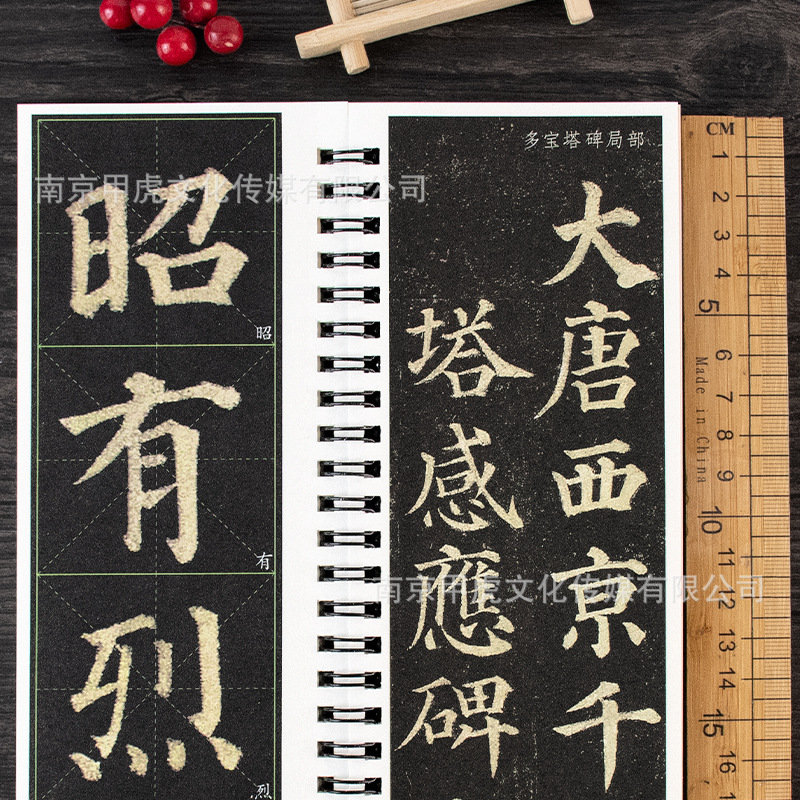 南京甲虎文化传媒有限公司
昭
昭
有
有
烈
烈
多宝塔碑局部
大唐西京千
塔感應碑
南京甲虎文化传媒有限公司
CM
1
2
3
4
5
6
7
8
9
10
11
12
13
14
15
16
Made in China